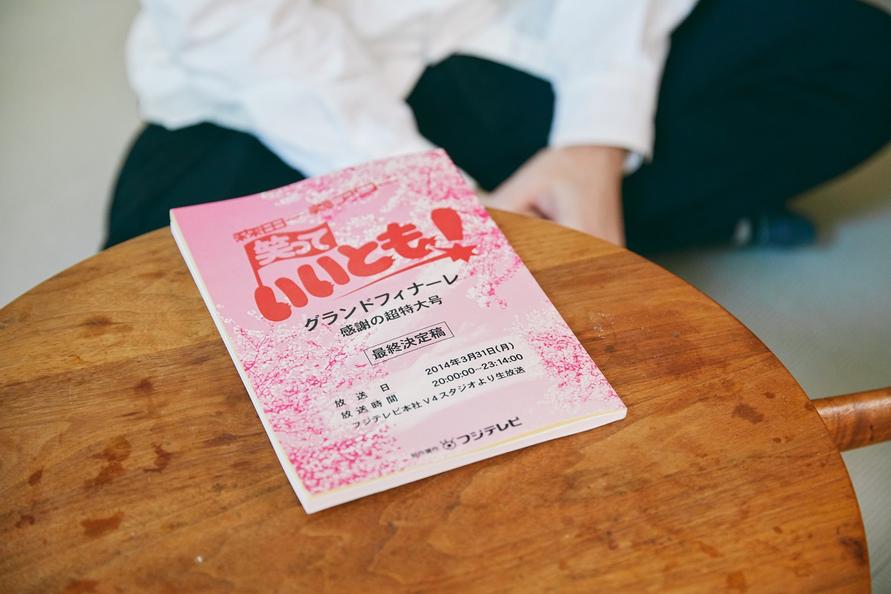 森田一義 アワー
笑って
いいとも!
グランドフィナーレ
感謝の超特大号
最終決定稿
放送日 2014年3月31日(月)
放送時間 20:00:00~23:14:00
フジテレビ本社V4スタジオより生放送
制作著作 フジテレビ